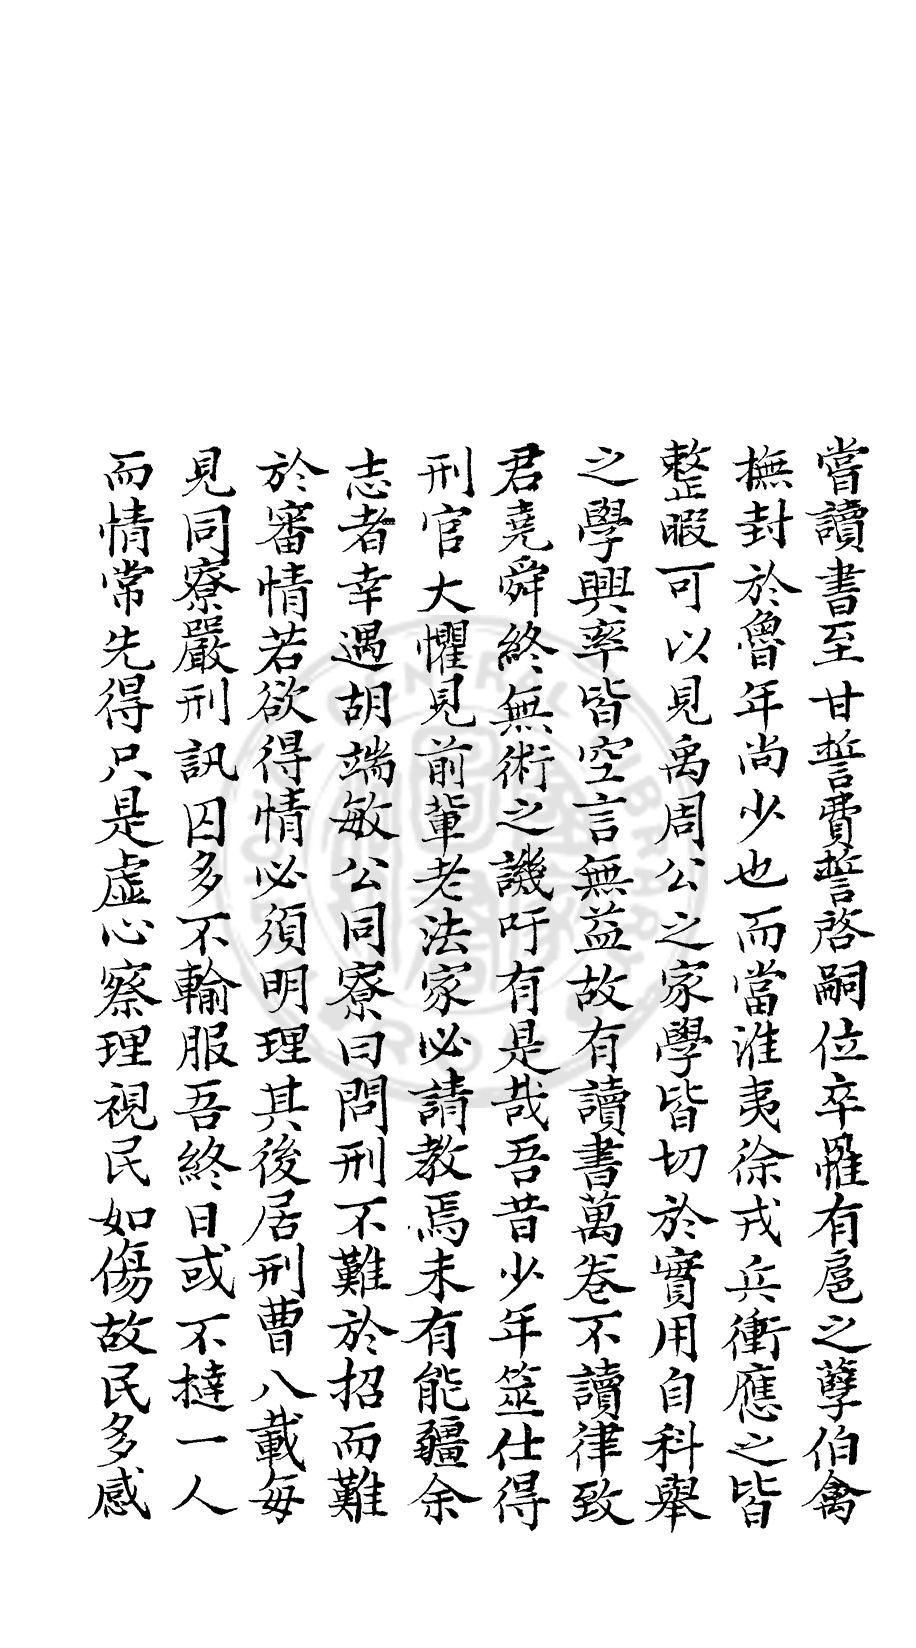 嘗讀書至甘誓費誓啓嗣位卒罹有扈之孽伯禽
撫封於魯年尚少也而當淮夷徐戎兵衝應之皆
整暇可以見禹周公之家學皆切於實用自科舉
之學興率皆空言無益故有讀書萬卷不讀律致
君堯舜終無術之譏吁有是哉吾昔少年筮仕得
刑官大懼見前輩老法家必請教焉未有能疆余
志者幸遇胡端敏公同寮曰問刑不難於招而難
於審情若欲得情必須明理其後居刑曹八載每
見同寮嚴刑訊囚多不輸服吾終日或不撻一人
而情常先得只是虛心察理視民如傷故民多感